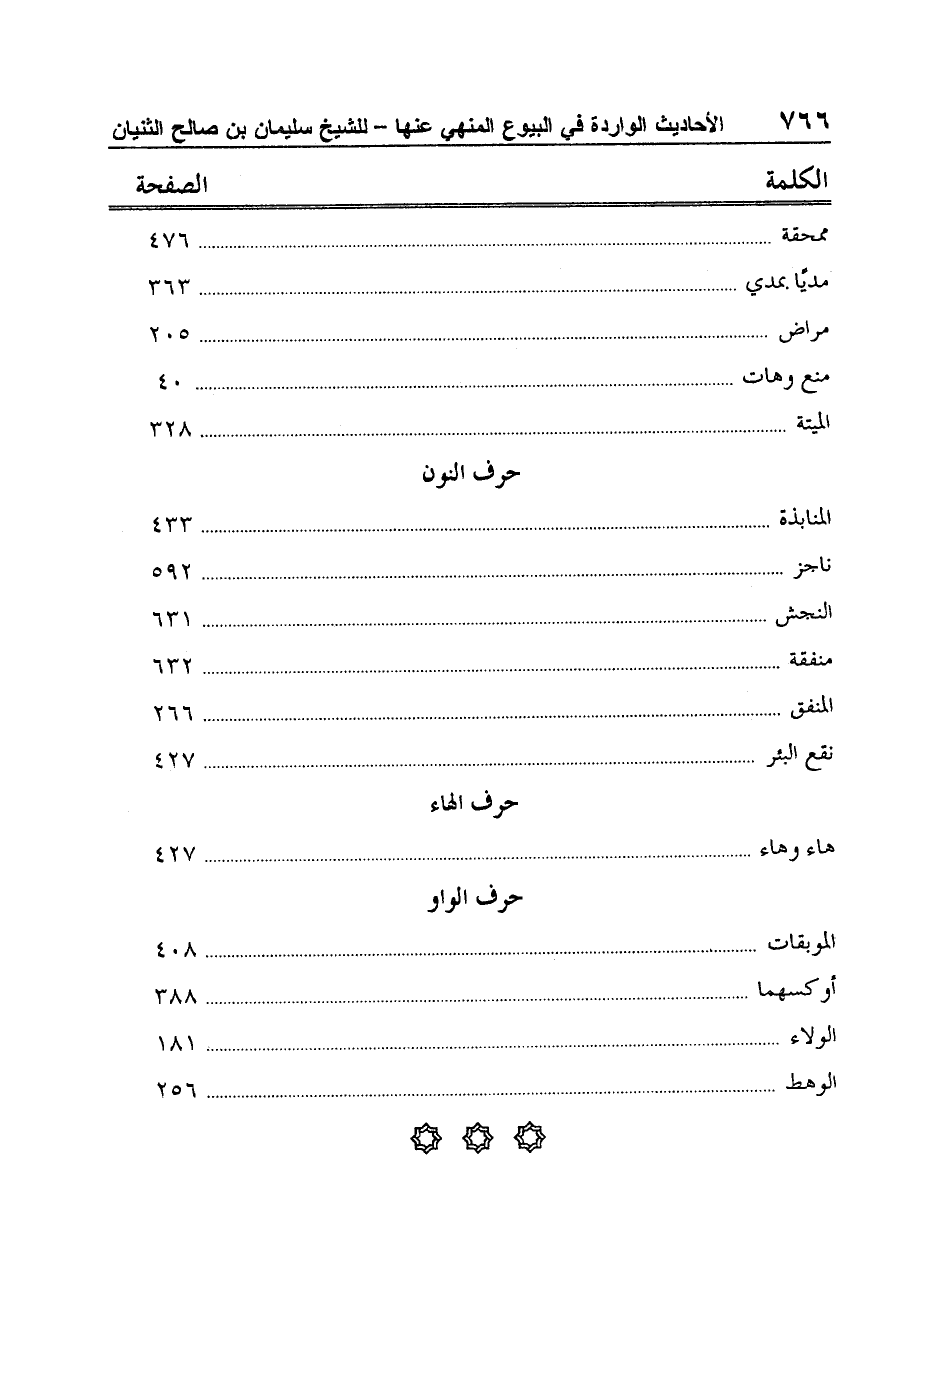 ٧٦٦ الأحاديث الواردة في البيوع المنهي عنها - للشيخ سليمان بن صالح الثنيان
الكلمة الصفحة
ممحقة ٤٧٦
مديًا بمدي ٣٦٣
مراض ٢٠٥
منع وهات ٤٠
الميتة ٣٢٨
حرف النون
المنابذة ٤٣٣
ناجز ٥٩٢
النجش ٦٣١
منفقة ٦٣٢
المنفق ٢٦٦
نقع البئر ٤٢٧
حرف الهاء
هاء وهاء ٤٢٧
حرف الواو
الموبقات ٤٠٨
أوكسهما ٣٨٨
الولاء ١٨١
الوهط ٢٥٦